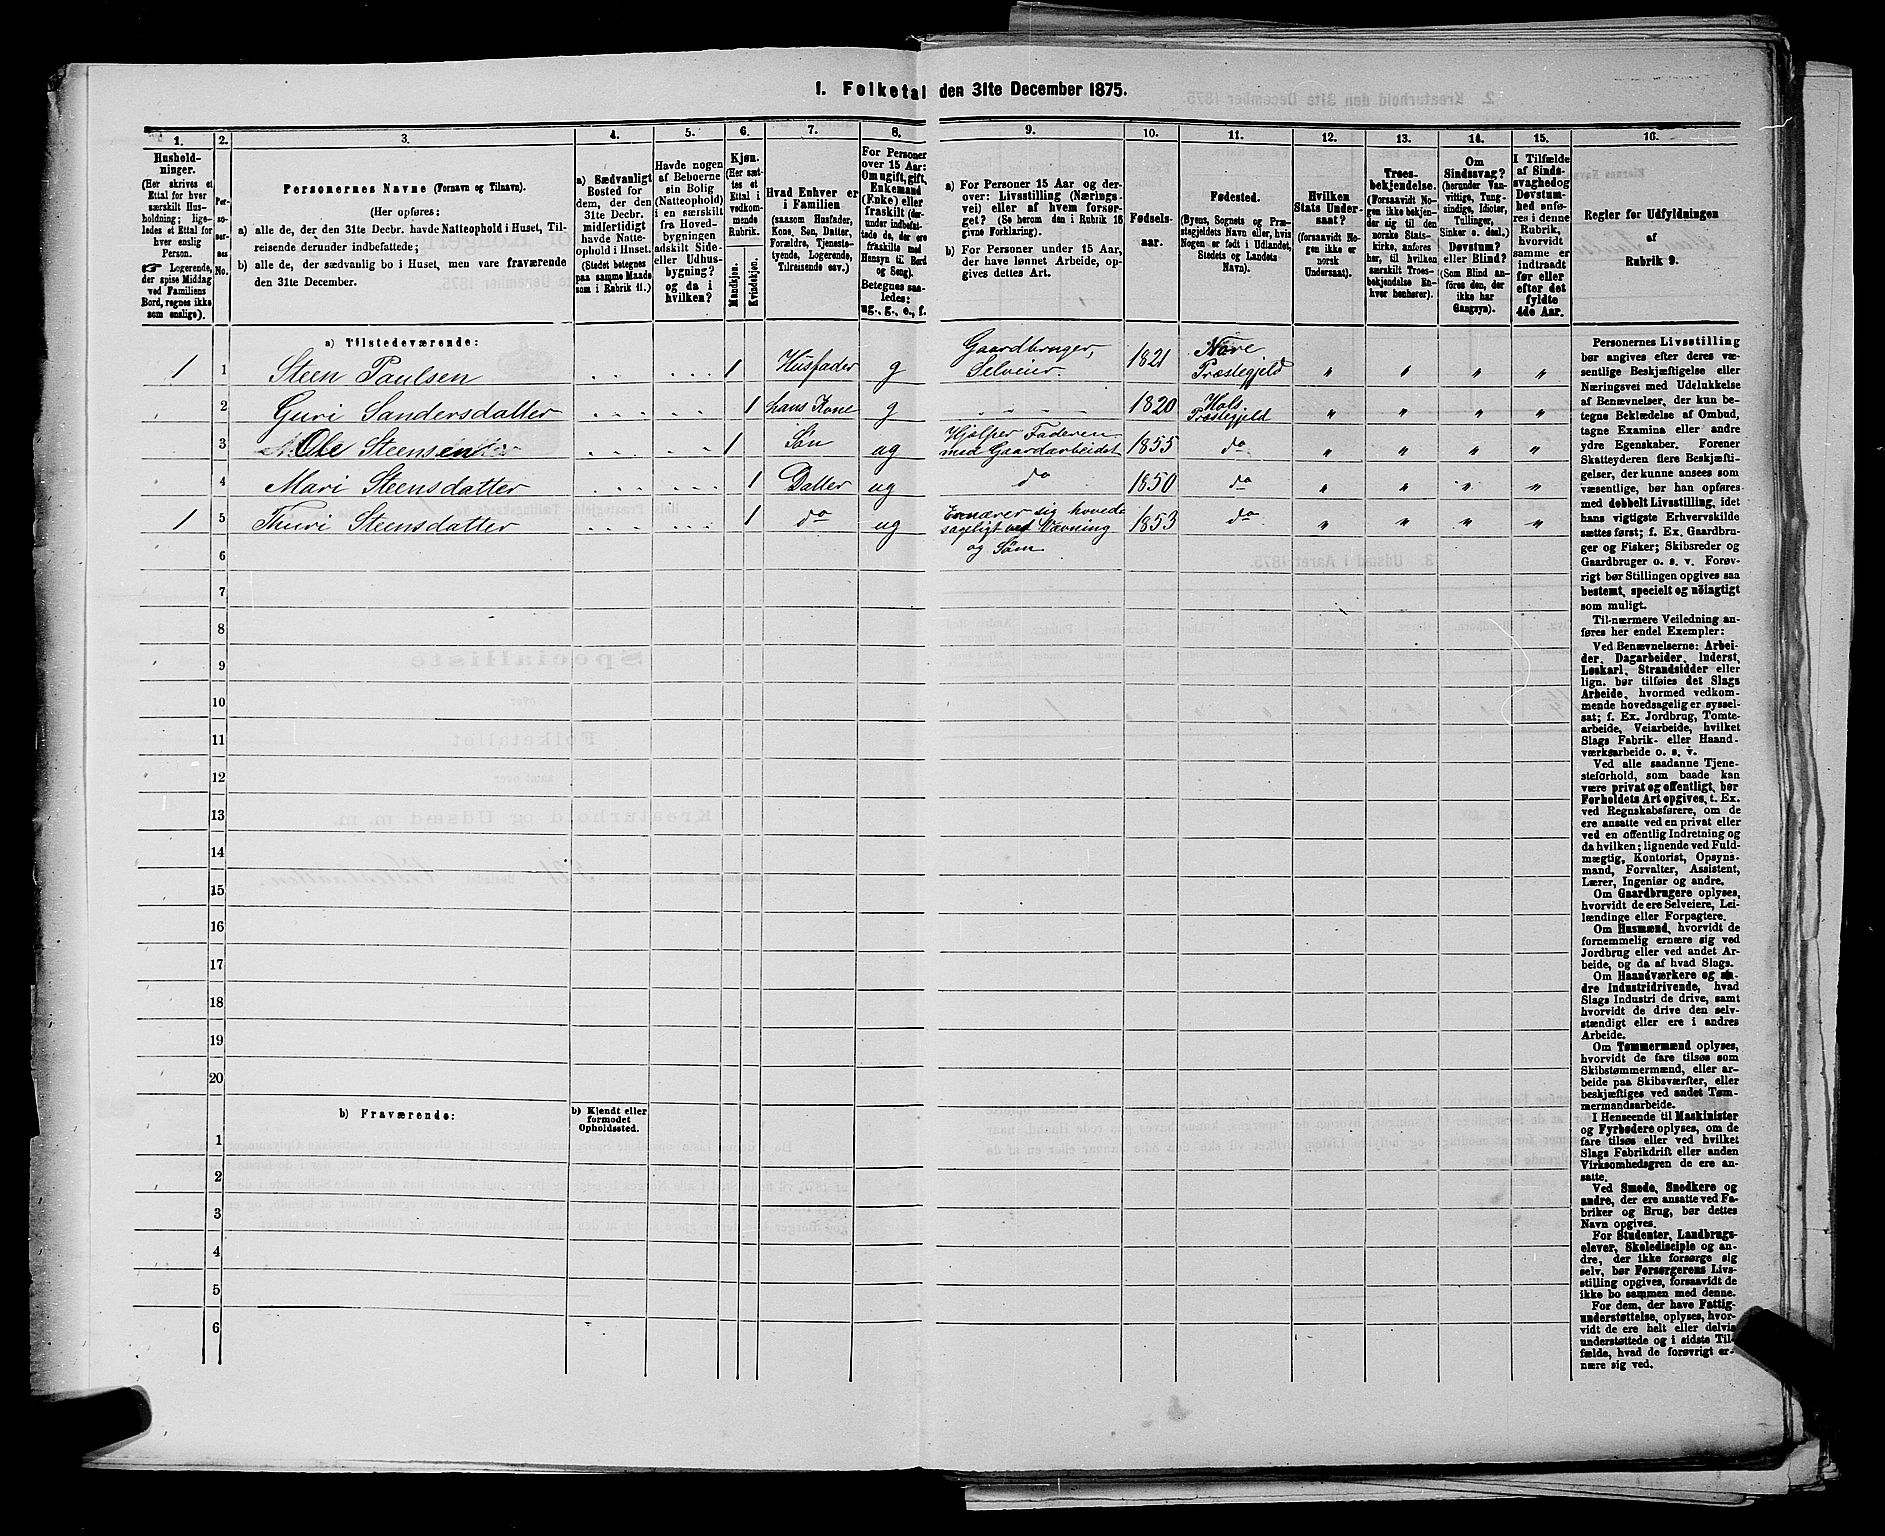 1. Folketal den 31te December 1875.
1. 2. 3. 4. 5. 6. 7. 8. 9. 10. 11. 12. 13. 14. 15. 16.
Hushold-
ninger.
(Her skrives et
Ettal for hver
særskilt Hus-
holdning; lige-
ledes et Ettal for
hver enslig
Person.
☛ Logerende,
der spise Middag
ved Familiens
Bord, regnes ikke
som enslige).
Per-
so-
ner-
nes
No.
Personernes Navne (Fornavn og Tilnavn).
(Her opføres:
a) alle de, der den 31te Decbr. havde Natteophold i Huset, Til-
reisende derunder indbefattede;
b) alle de, der sædvanlig bo i Huset, men vare fraværende
den 31te December.
a) Sædvanligt
Bosted for
dem, der den
31te Decbr.
midlertidigt
havde Natte-
ophold i Huset.
(Stedet betegnes
paa samme Maade
som i Rubrik 11.)
Havde nogen
af Beboerne
sin Bolig
(Natteophold)
i en særskilt
fra Hoved-
bygningen
adskilt Side-
eller Udhus-
bygning?
og da i
hvilken?
Kjøn.
(Her sæt-
tes et
Ettal i
vedkom-
mende
Rubrik.
Mandkjøn.
Kvindekjøn.
Hvad Enhver er
i Familien
(saasom Husfader,
Kone, Søn, Datter,
Forældre, Tjeneste-
tyende, Logerende,
Tilreisende osv.)
For Personer
over 15 Aar:
Om ugift, gift,
Enkemand
(Enke) eller
fraskilt (der-
under indbefat-
tede de, der ere
fraskilte med
Hensyn til Bord
og Seng).
Betegnes saa-
ledes:
ug., g., e., f.
a) For Personer 15 Aar og der-
over: Livsstilling (Nærings-
vei) eller af hvem forsør-
get? (Se herom den i Rubrik 16
givne Forklaring).
b) For Personer under 15 Aar,
der have lønnet Arbeide, op-
gives dettes Art.
Fødsels-
aar.
Fødested.
(Byens, Sognets og Præ-
stegjeldets Navn eller, hvis
Nogen er født i Udlandet,
Stedets og Landets
Navn).
Hvilken
Stats Under-
saat?
(forsaavidt No-
gen ikke er
norsk
Undersaat).
Troes-
bekjendelse.
(Forsaavidt No-
gen ikke bekjen-
der sig til den
norske Stats-
kirke, anføres
her, til hvilken
særskilt Troes-
bekjendelse En-
hver henhører).
Om
Sindssvag?
(herunder Van-
vittige, Tung-
sindige, Idioter,
Tullinger,
Sinker o. desl.)
Døvstum?
eller Blind?
(Som Blind an-
føres den, der
ikke har
Gangsyn).
I Tilfælde
af Sinds-
svaghed og
Døvstum-
hed anfø-
res i denne
Rubrik,
hvorvidt
samme er
indtraadt
før eller
efter det
fyldte
4de Aar.
Regler for Udfyldningen
af
Rubrik 9.
a) Tilstedeværende:
1 1 Steen Paulsen 1 Husfader g Gaardbruger, Selveier. 1821 Nore Præstegjeld
2 Guri Sandersdatter 1 hans Kone g 1820 Hols Præstegjeld
3 Ole Steensen 1 Søn ug Hjælper Faderen med Gaardarbeidet 1855 do
4 Mari Steensdatter 1 Datter ug do 1850 do
1 5 Thuri Steensdatter 1 do ug Ernærer sig hoved-
sagligt ved Vævning 1853 do
6 og Søm
7
8
9
10
11
12
13
14
15
16
17
18
19
20
b) Fraværende:
b) Kjendt eller
formodet
Opholdssted.
1
2
3
4
5
6
Personernes Livsstilling
bør angives efter deres væ-
sentlige Beskjæftigelse eller
Næringsvei med Udelukkelse
af Benævnelser, der kun be-
tegne Beklædelse af Ombud,
tagne Examina eller andre
ydre Egenskaber. Forener
Skatteyderen flere Beskjæfti-
gelser, der kunne ansees som
væsentlige, bør han opføres
med dobbelt Livsstilling, idet
hans vigtigste Erhvervskilde
sættes først; f. Ex. Gaardbru-
ger og Fisker; Skibsreder og
Gaardbruger o. s. v. Forøv-
rigt bør Stillingen opgives saa
bestemt, specielt og nøiagtigt
som muligt.
Til nærmere Veiledning an-
føres her endel Exempler:
Ved Benævnelserne: Arbei-
der, Dagarbeider, Inderst,
Løskarl, Strandsidder eller
lign. bør tilføies det Slags
Arbeide, hvormed vedkom-
mende hovedsagelig er syssel-
sat; f. Ex. Jordbrug, Tomte-
arbeide, Veiarbeide, hvilket
Slags Fabrik- eller Haand-
værksarbeide o. s. v.
Ved alle saadanne Tjene-
steforhold, som baade kan
være privat og offentligt, bør
Forholdets Art opgives, t. Ex.
ved Regnskabsførere, om de
ere ansatte ved en privat eller
ved en offentlig Indretning og
da hvilken; lignende ved Fuld-
mægtig, Kontorist, Opsyns-
mand, Forvalter, Assistent,
Lærer, Ingeniør og andre.
Om Gaardbrugere oplyses,
hvorvidt de ere Selveiere, Lei-
lændinge eller Forpagtere.
Om Husmænd, hvorvidt de
fornemmelig ernære sig ved
Jordbrug eller ved andet Ar-
beide, og da af hvad Slags.
Om Haandværkere og an-
dre Industridrivende, hvad
Slags Industri de drive, samt
hvorvidt de drive den selv-
stændigt eller ere i andres
Arbeide.
Om Tømmermænd oplyses,
hvorvidt de fare tilsøs som
Skibstømmermænd, eller ar-
beide paa Skibsværfter, eller
beskjæftiges ved andet Tøm-
mermandsarbeide.
I Henseende til Maskinister
og Fyrbødere oplyses, om de
fare tilsøs eller ved hvilket
Slags Fabrikdrift eller anden
Virksomhedsgren de ere an-
satte.
Ved Smede, Snedkere og
andre, der ere ansatte ved Fa-
briker og Brug, bør dettes
Navn opgives.
For Studenter, Landbrugs-
elever, Skoledisciple og an-
dre, der ikke forsørge sig
selv, bør Forsørgerens Livs-
stilling opgives, forsaavidt de
ikke bo sammen med denne.
For dem, der have Fattig-
understøttelse, oplyses, hvor-
vidt de ere helt eller delvis
understøttede og i sidste Til-
fælde, hvad de forøvrigt er-
nære sig ved.